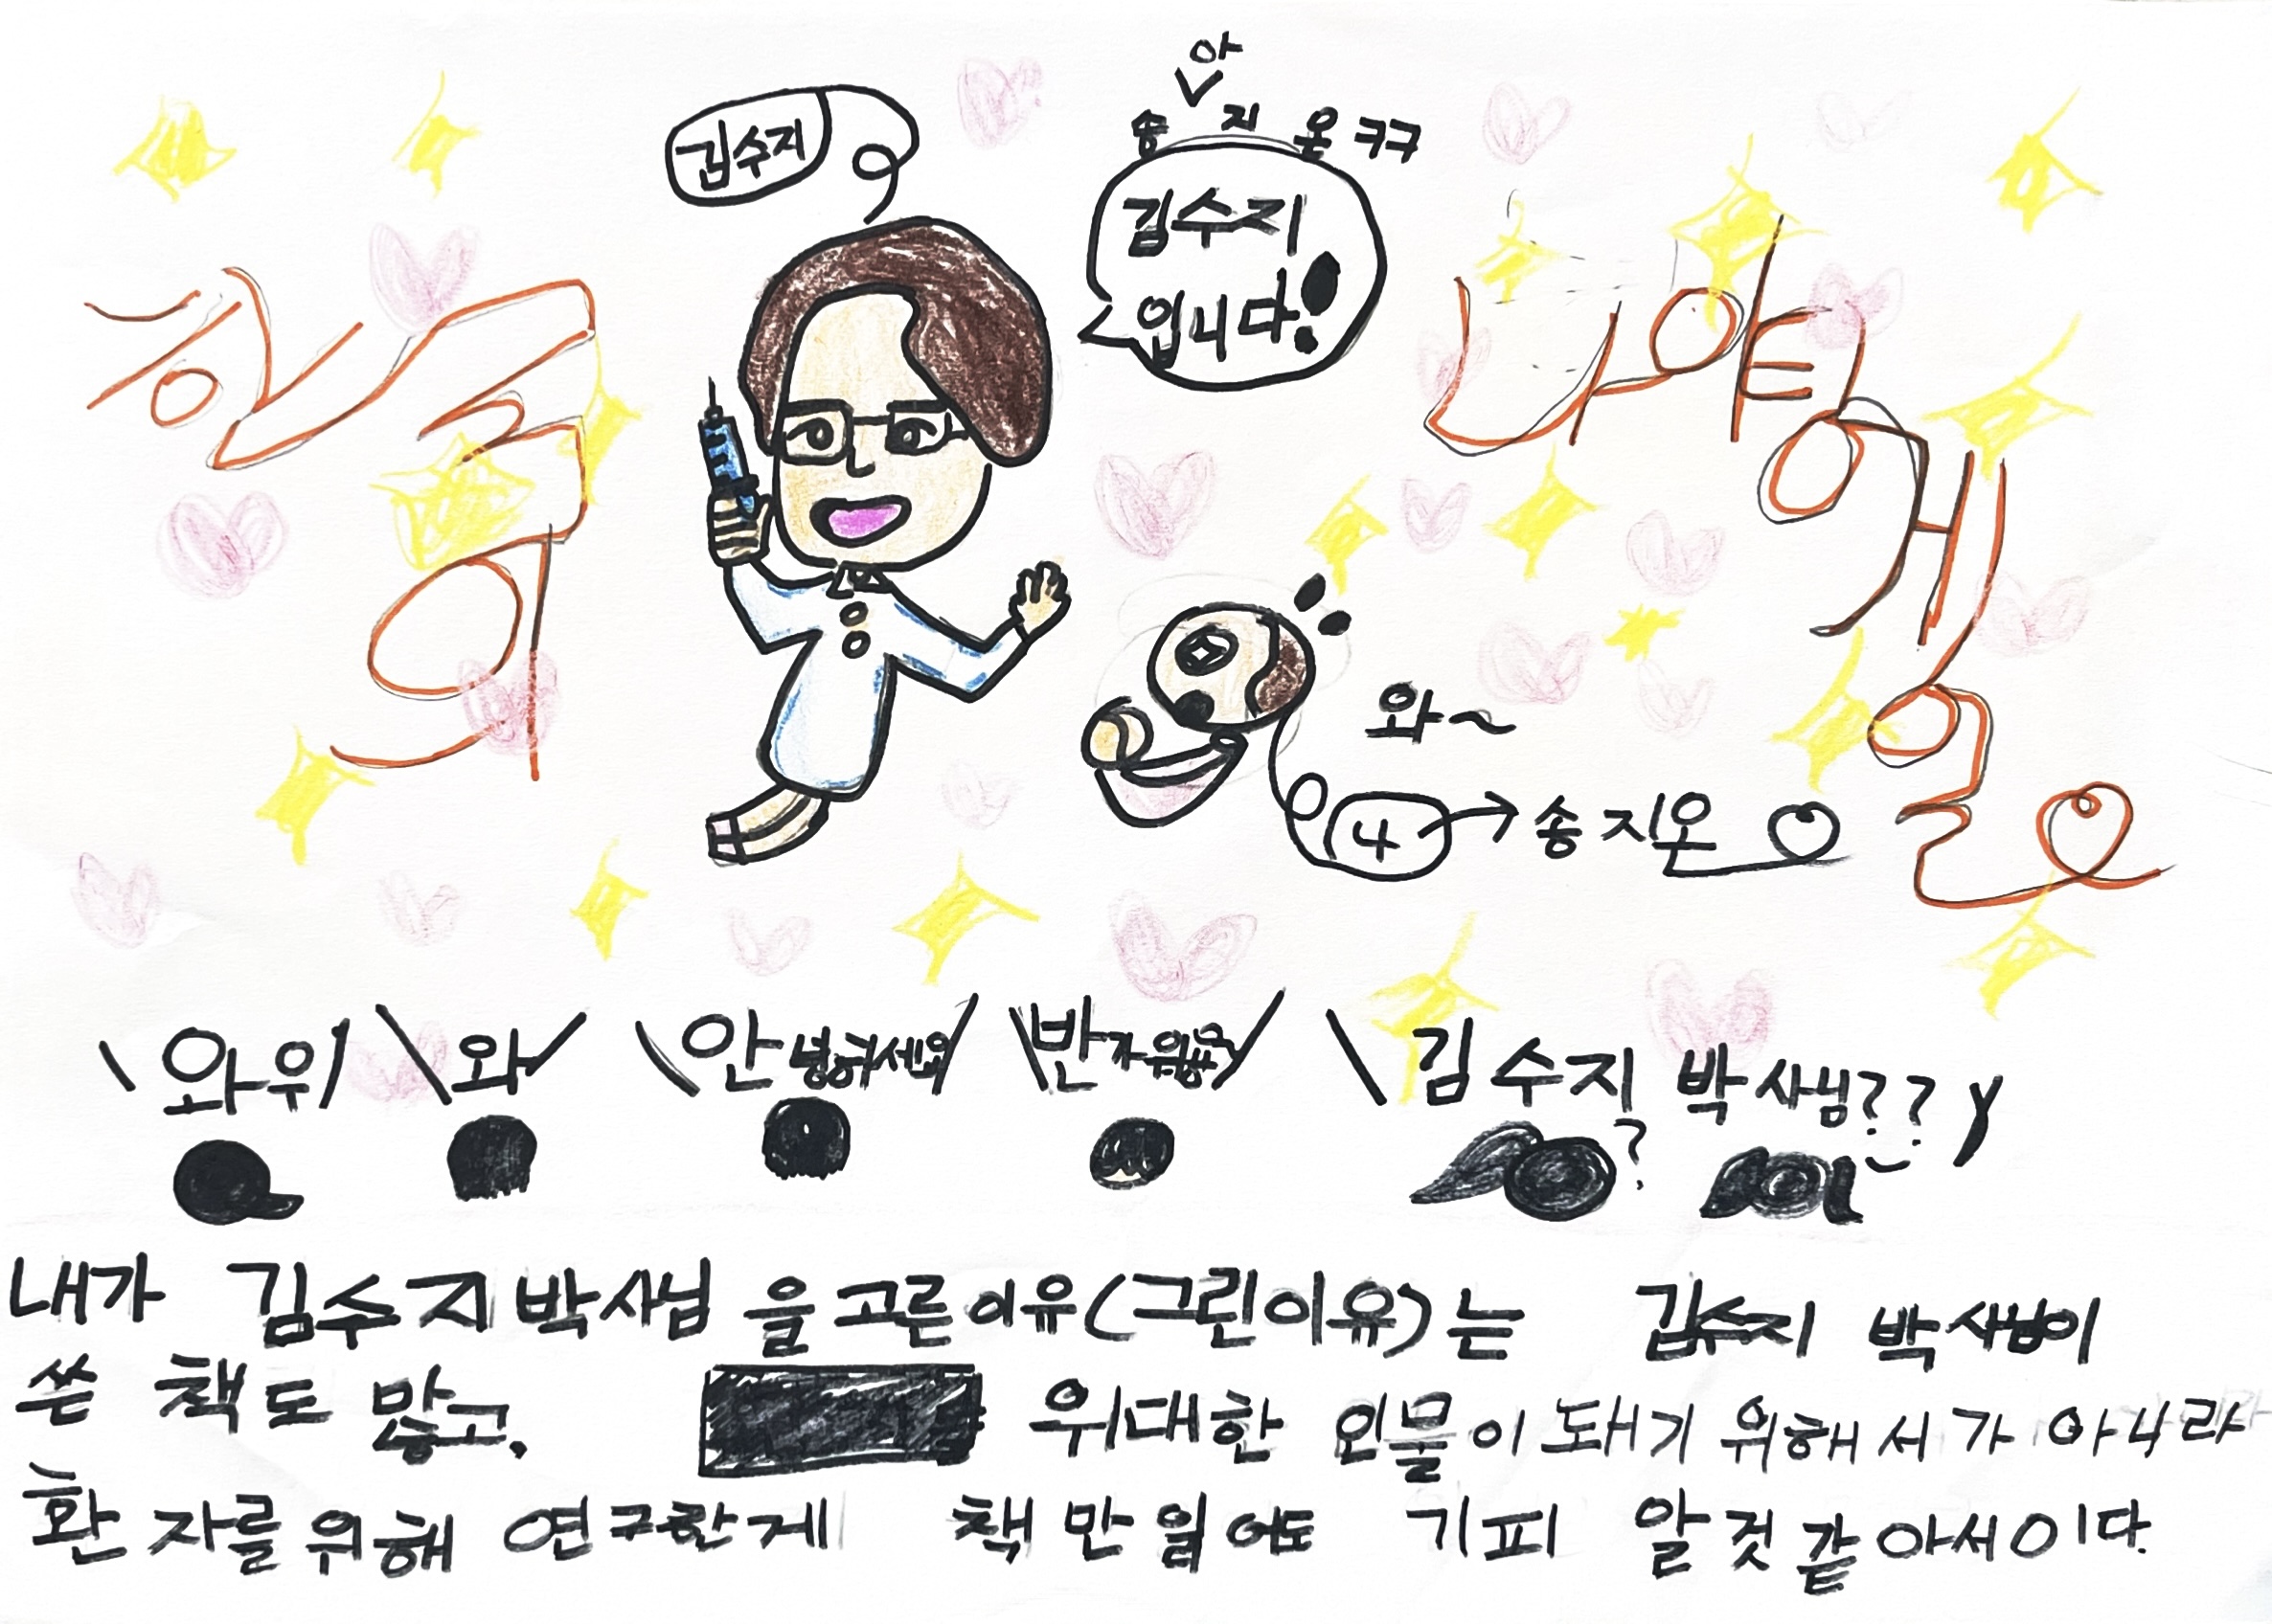 아
송지온 ㅋㅋ
김수지
김수지
입니다!
한국의
나이팅게일
와~
나 → 송지온
와우
와
안녕하세요
김수지 박사님??
?
내가 김수지박사님 을 고른이유(그린이유)는 김수지 박사님이
쓴 책도 많고, 위대한 인물이 돼기 위해서가 아니라
환자를위해 연구한게 책만 읽어도 기피 알것 같아서이다.